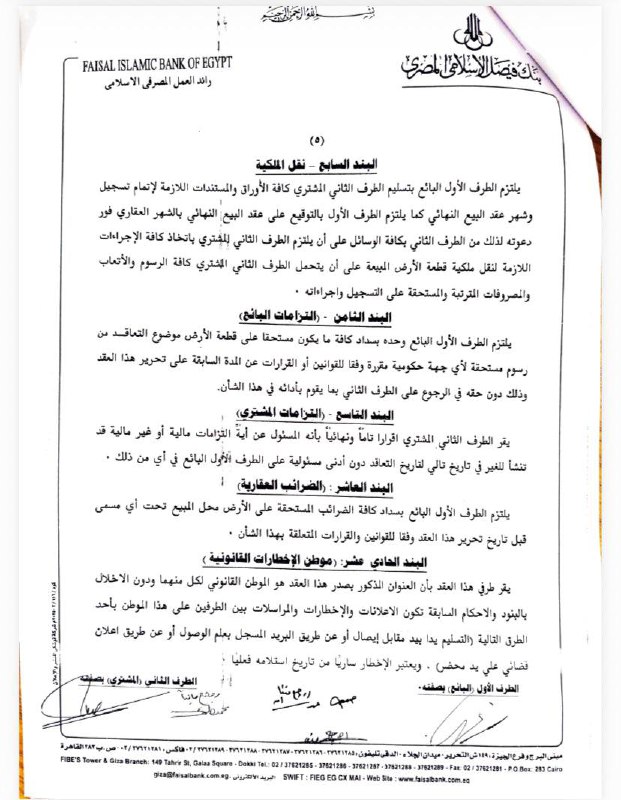 بسم الله الرحمن الرحيم
بنك فيصل الإسلامي المصري
FAISAL ISLAMIC BANK OF EGYPT
رائد العمل المصرفى الاسلامى
(٥)
البند السابع – نقل الملكية
يلتزم الطرف الأول البائع بتسليم الطرف الثاني المشتري كافة الأوراق والمستندات اللازمة لإتمام تسجيل
وشهر عقد البيع النهائي كما يلتزم الطرف الأول بالتوقيع على عقد البيع النهائي بالشهر العقاري فور
دعوته لذلك من الطرف الثاني بكافة الوسائل على أن يلتزم الطرف الثاني المشتري باتخاذ كافة الإجراءات
اللازمة لنقل ملكية قطعة الأرض المبيعة على أن يتحمل الطرف الثاني المشتري كافة الرسوم والأتعاب
والمصروفات المترتبة والمستحقة على التسجيل واجراءاته .
البند الثامن - (التزامات البائع)
يلتزم الطرف الأول البائع وحده بسداد كافة ما يكون مستحقا على قطعة الأرض موضوع التعاقد من
رسوم مستحقة لأي جهة حكومية مقررة وفقا للقوانين أو القرارات عن المدة السابقة على تحرير هذا العقد
وذلك دون حقه في الرجوع على الطرف الثاني بما يقوم بأدائه في هذا الشأن.
البند التاسع - (التزامات المشتري)
يقر الطرف الثاني المشتري اقرارا تاماً ونهائياً بأنه المسئول عن أية التزامات مالية أو غير مالية قد
تنشأ للغير في تاريخ تالي لتاريخ التعاقد دون أدنى مسئولية على الطرف الأول البائع في أي من ذلك .
البند العاشر : (الضرائب العقارية)
يلتزم الطرف الأول البائع بسداد كافة الضرائب المستحقة على الأرض محل المبيع تحت أي مسمى
قبل تاريخ تحرير هذا العقد وفقا للقوانين والقرارات المتعلقة بهذا الشأن .
البند الحادي عشر: (موطن الإخطارات القانونية)
يقر طرفي هذا العقد بأن العنوان المذكور بصدر هذا العقد هو الموطن القانوني لكل منهما ودون الاخلال
بالبنود والاحكام السابقة تكون الاعلانات والإخطارات والمراسلات بين الطرفين على هذا الموطن بأحد
الطرق التالية (التسليم يدا بيد مقابل إيصال أو عن طريق البريد المسجل بعلم الوصول أو عن طريق اعلان
قضائي علي يد محضر) . ويعتبر الإخطار ساريًا من تاريخ استلامه فعليًا
الطرف الأول (البائع) بصفته.
الطرف الثاني (المشتري) بصفته
مبنى البرج وفرع الجيزة: ١٤٩ ش التحرير - ميدان الجلاء - الدقى تليفون: ٣٧٦٢١٢٨٥ - ٣٧٦٢١٢٨٦ - ٣٧٦٢١٢٨٧ - ٣٧٦٢١٢٨٨ - ٣٧٦٢١٢٨٩ /٠٢ فاكس: ٣٧٦٢١٢٨١ /٠٢ - ص.ب ٢٨٣ القاهرة
FIBE'S Tower & Giza Branch: 149 Tahrir St, Galaa Square - Dokki Tel.: 02 / 37621285 - 37621286 - 37621287 - 37621288 - 37621289 - Fax: 02 / 37621281 - P.O.Box: 283 Cairo
giza@faisalbank.com.eg البريد الالكترونى SWIFT : FIEG EG CX MAI - Web Site : www.faisalbank.com.eg